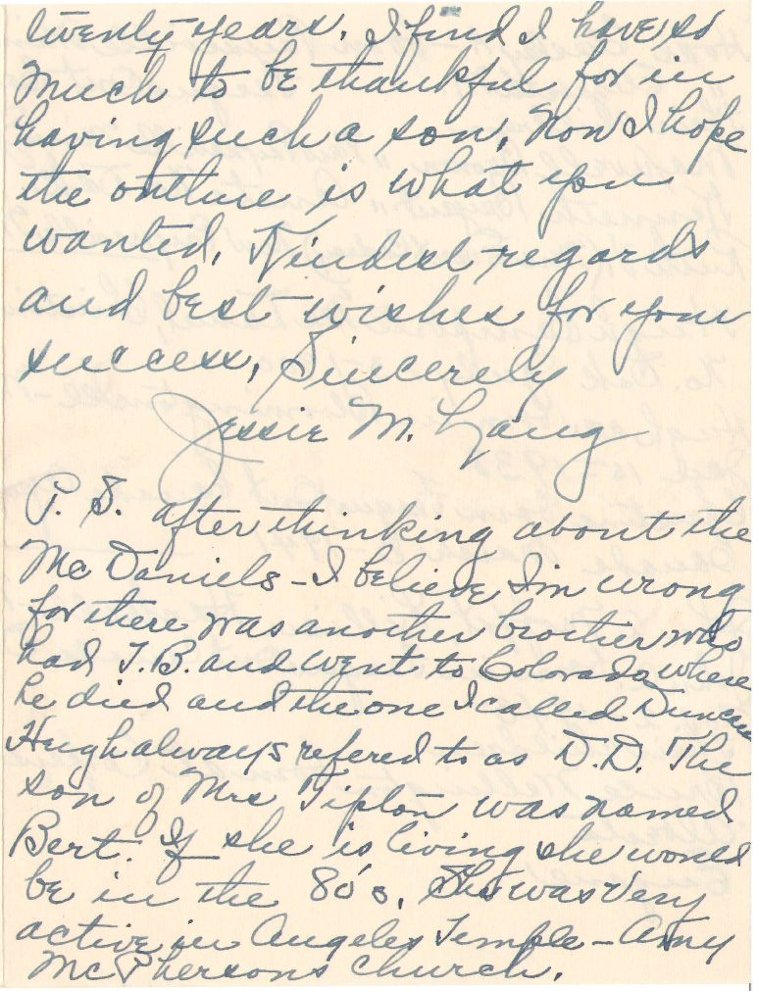 twenty years. I find I have so
much to be thankful for in
having such a son, Now I hope
the outline is what you
wanted, Kindest regards
and best wishes for your
success, Sincerely
Jessie M. Lang
P. S. after thinking about the
McDaniels - I believe I'm wrong
for there was another brother who
had T.B. and went to Colorado where
he died and the one I called Duncan
Hugh always refered to as D.D. The
son of Mrs Tipton was named
Bert. If she is living she would
be in the 80's. She was very
active in Angeles Temple - Amy
McPhersons church.